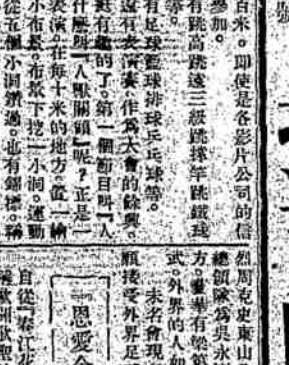 號
百米。即使是各影片公司的信
參加。
有跳高跳遠三級跳撑竿跳鐵球
等。
有足球籃球排球乒乓球等。
還有表演賽作爲大會的餘興。
挺有趣的了。第一個節目叫「人
什麽叫「人獸關頭」呢？正是一
表演。在每十米的地方。置一
小布景。布景下挖一小洞。運動
從五個小洞鑽過。也有錦標。
烈周克史東山
總領隊爲吳永
方。
式。外界的人如
未名會現
願接受外界足
恩愛
自從「春江花